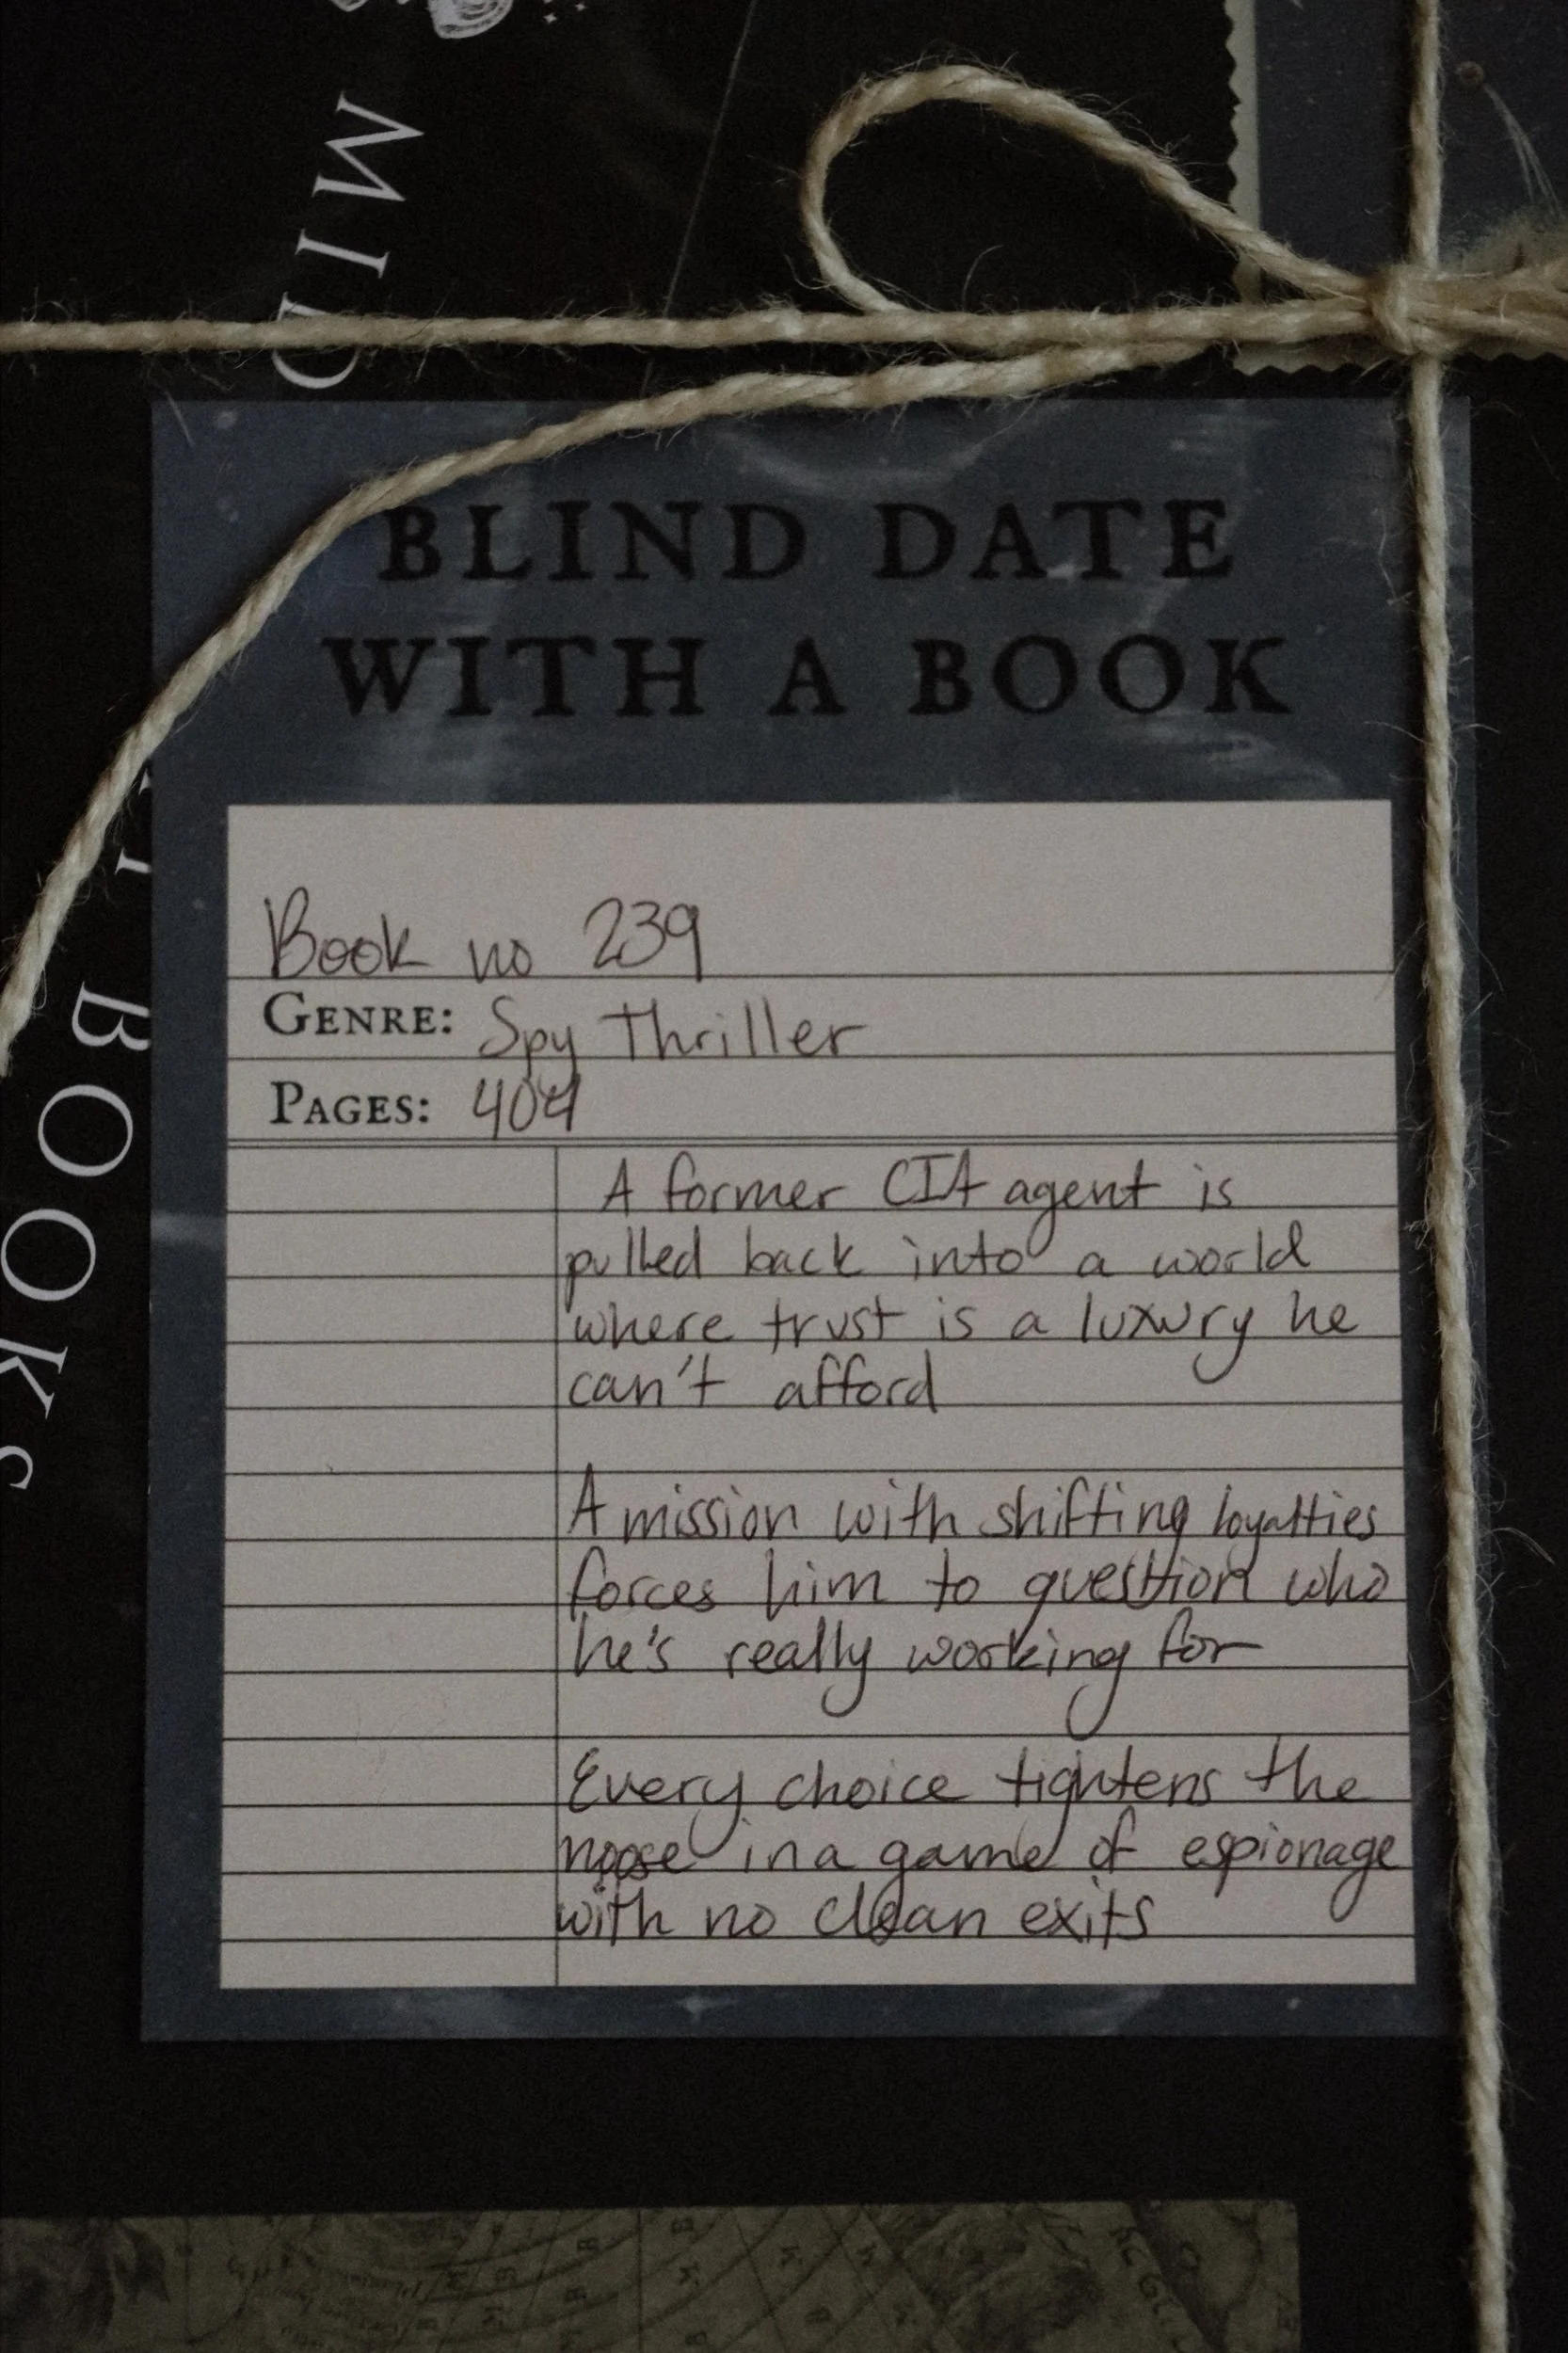 MID
BLIND DATE
WITH A BOOK
Book no 239
GENRE: Spy Thriller
PAGES: 404
A former CIA agent is
pulled back into a world
where trust is a luxury he
can't afford
A mission with shifting loyalties
forces him to question who
he's really working for
Every choice tightens the
noose in a game of espionage
with no clean exits
BOOKS